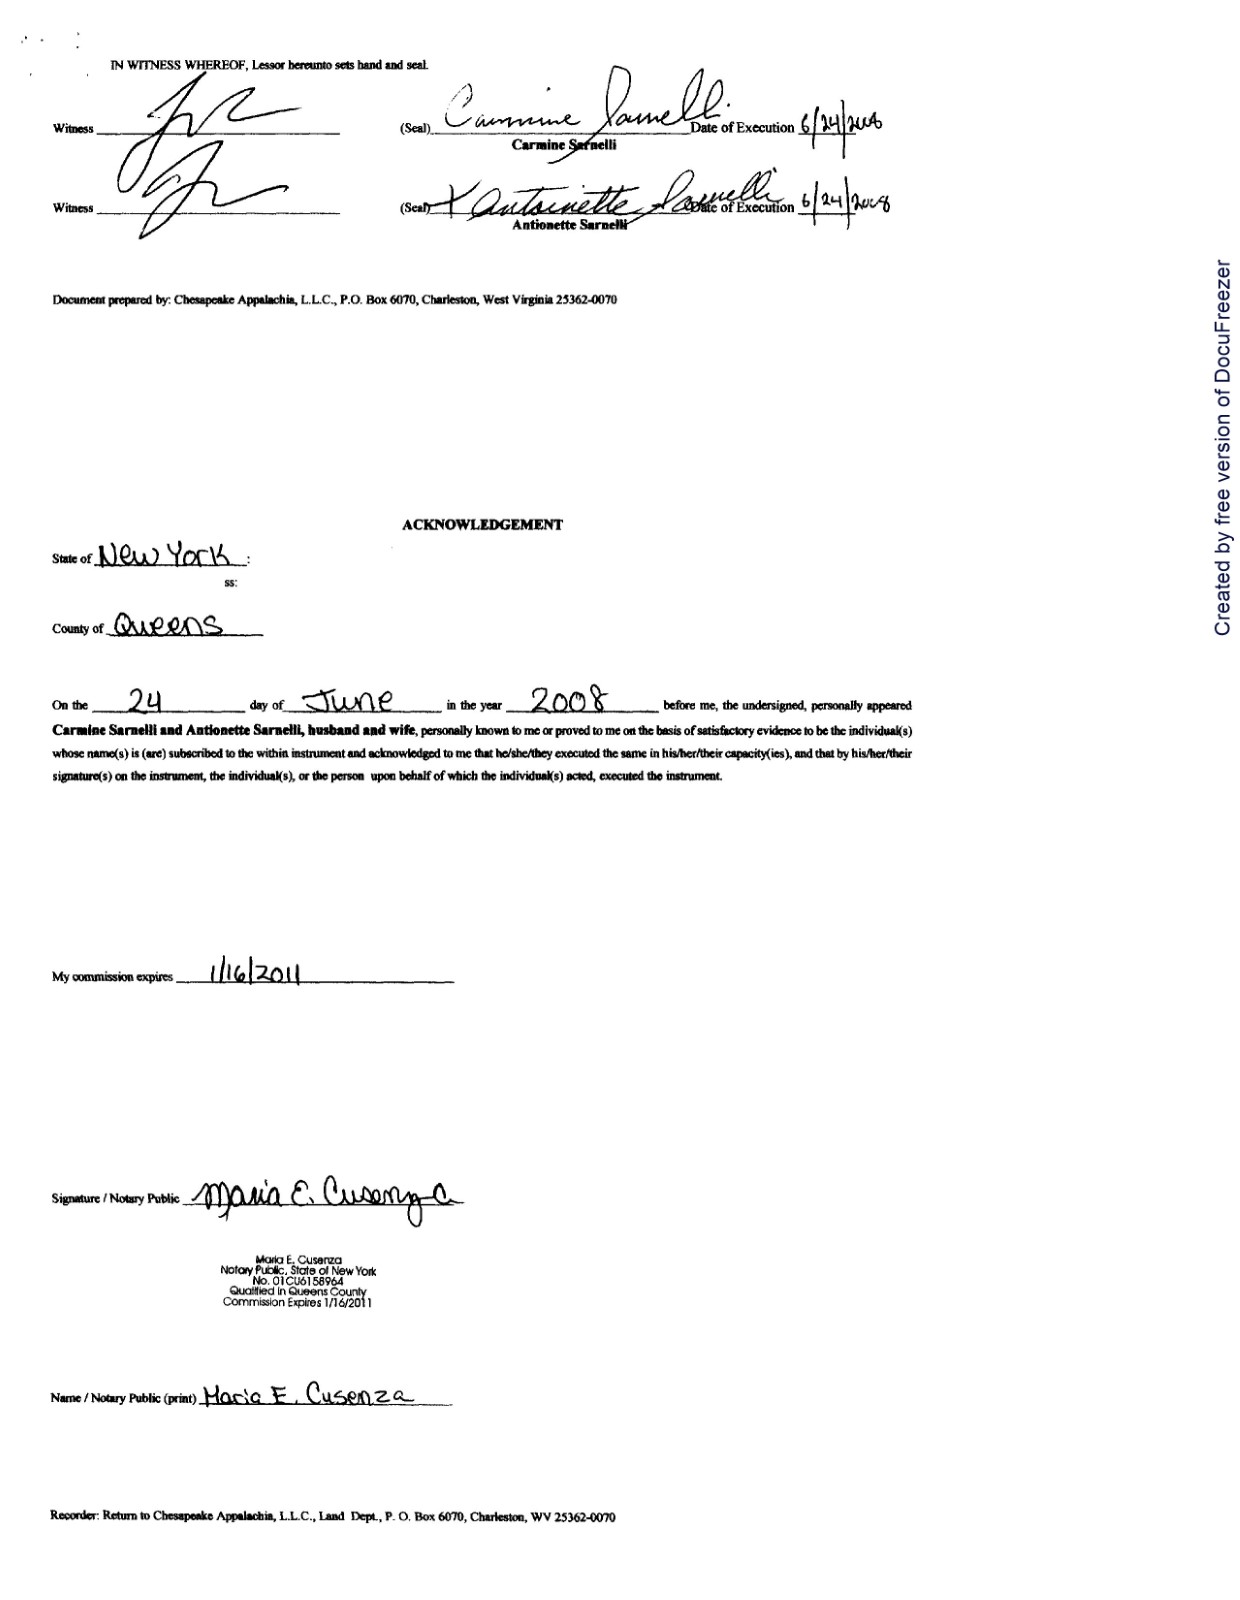 IN WITNESS WHEREOF, Lessor hereunto sets hand and seal.
Witness (Seal) Carmine Sarnelli Date of Execution 6/24/2008
Carmine Sarnelli
Witness (Seal) X Antoinette Sarnelli Date of Execution 6/24/2008
Antionette Sarnelli
Document prepared by: Chesapeake Appalachia, L.L.C., P.O. Box 6070, Charleston, West Virginia 25362-0070
ACKNOWLEDGEMENT
State of New York :
ss:
County of Queens
On the 24 day of June in the year 2008 before me, the undersigned, personally appeared
Carmine Sarnelli and Antionette Sarnelli, husband and wife, personally known to me or proved to me on the basis of satisfactory evidence to be the individual(s)
whose name(s) is (are) subscribed to the within instrument and acknowledged to me that he/she/they executed the same in his/her/their capacity(ies), and that by his/her/their
signature(s) on the instrument, the individual(s), or the person upon behalf of which the individual(s) acted, executed the instrument.
My commission expires 1/16/2011
Signature / Notary Public Maria E. Cusenza
Maria E. Cusenza
Notary Public, State of New York
No. 01CU6158964
Qualified in Queens County
Commission Expires 1/16/2011
Name / Notary Public (print) Maria E. Cusenza
Recorder: Return to Chesapeake Appalachia, L.L.C., Land Dept., P. O. Box 6070, Charleston, WV 25362-0070
Created by free version of DocuFreezer